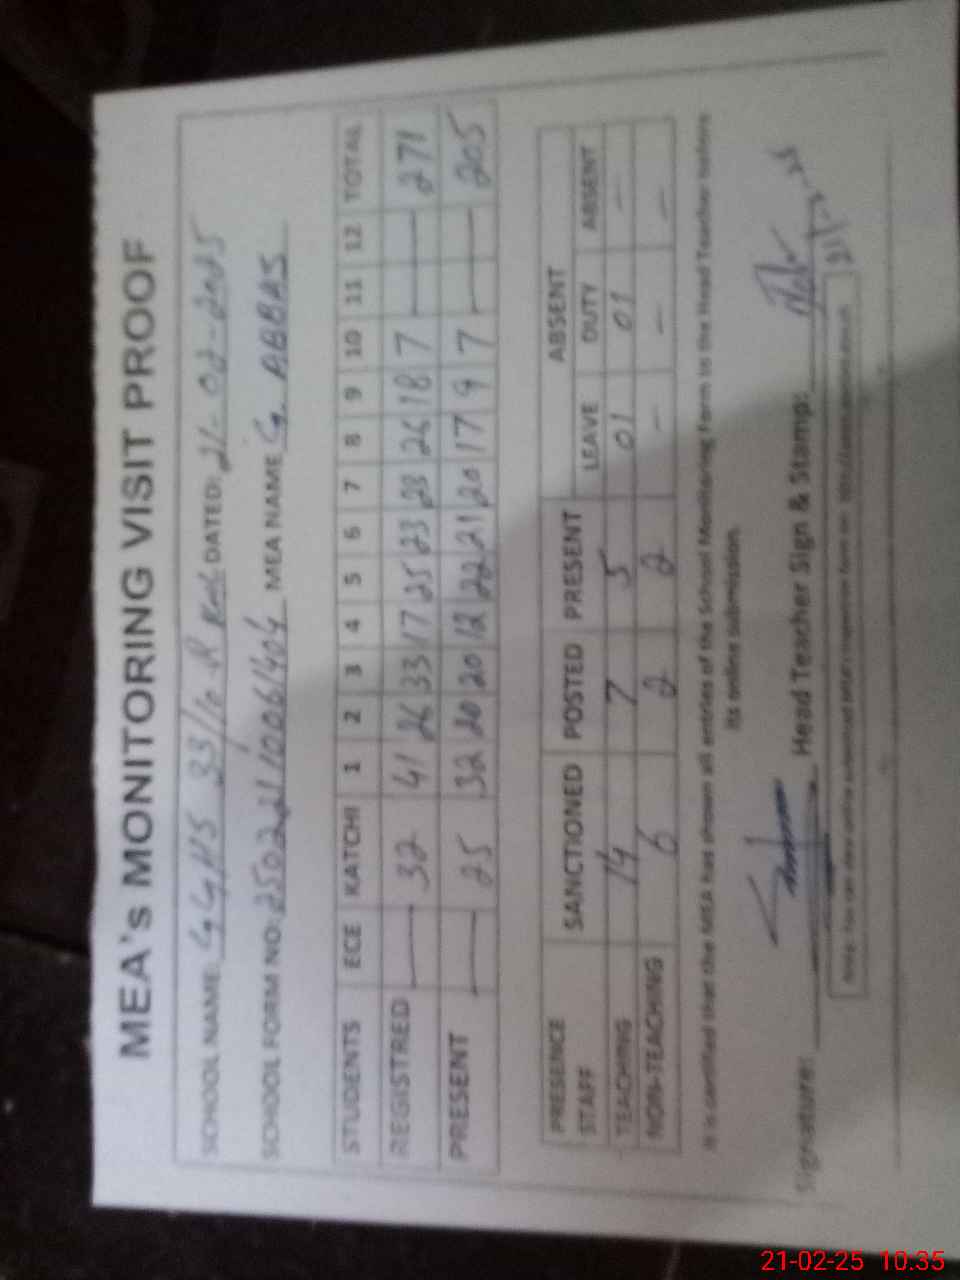 MEA's MONITORING VISIT PROOF
SCHOOL NAME: GGHS 33/10-R DATED: 21-02-2025
SCHOOL FORM NO: MEA NAME G. ABBAS
STUDENTS ECE KATCHI 1 2 3 4 5 6 7 8 9 10 11 12 TOTAL
REGISTRED — 32 41 26 33 17 25 23 23 26 18 7 — 271
PRESENT — 25 32 20 20 12 22 21 20 17 9 7 — 205
PRESENCE SANCTIONED POSTED PRESENT ABSENT
STAFF LEAVE DUTY ABSENT
TEACHING 14 7 5 01 01 —
NON-TEACHING 6 2 2 — — —
It is certified that the MEA has shown all entries of the School Monitoring Form to the Head Teacher before
its online submission.
Signature: Head Teacher Sign & Stamp:
21-02-25 10:35